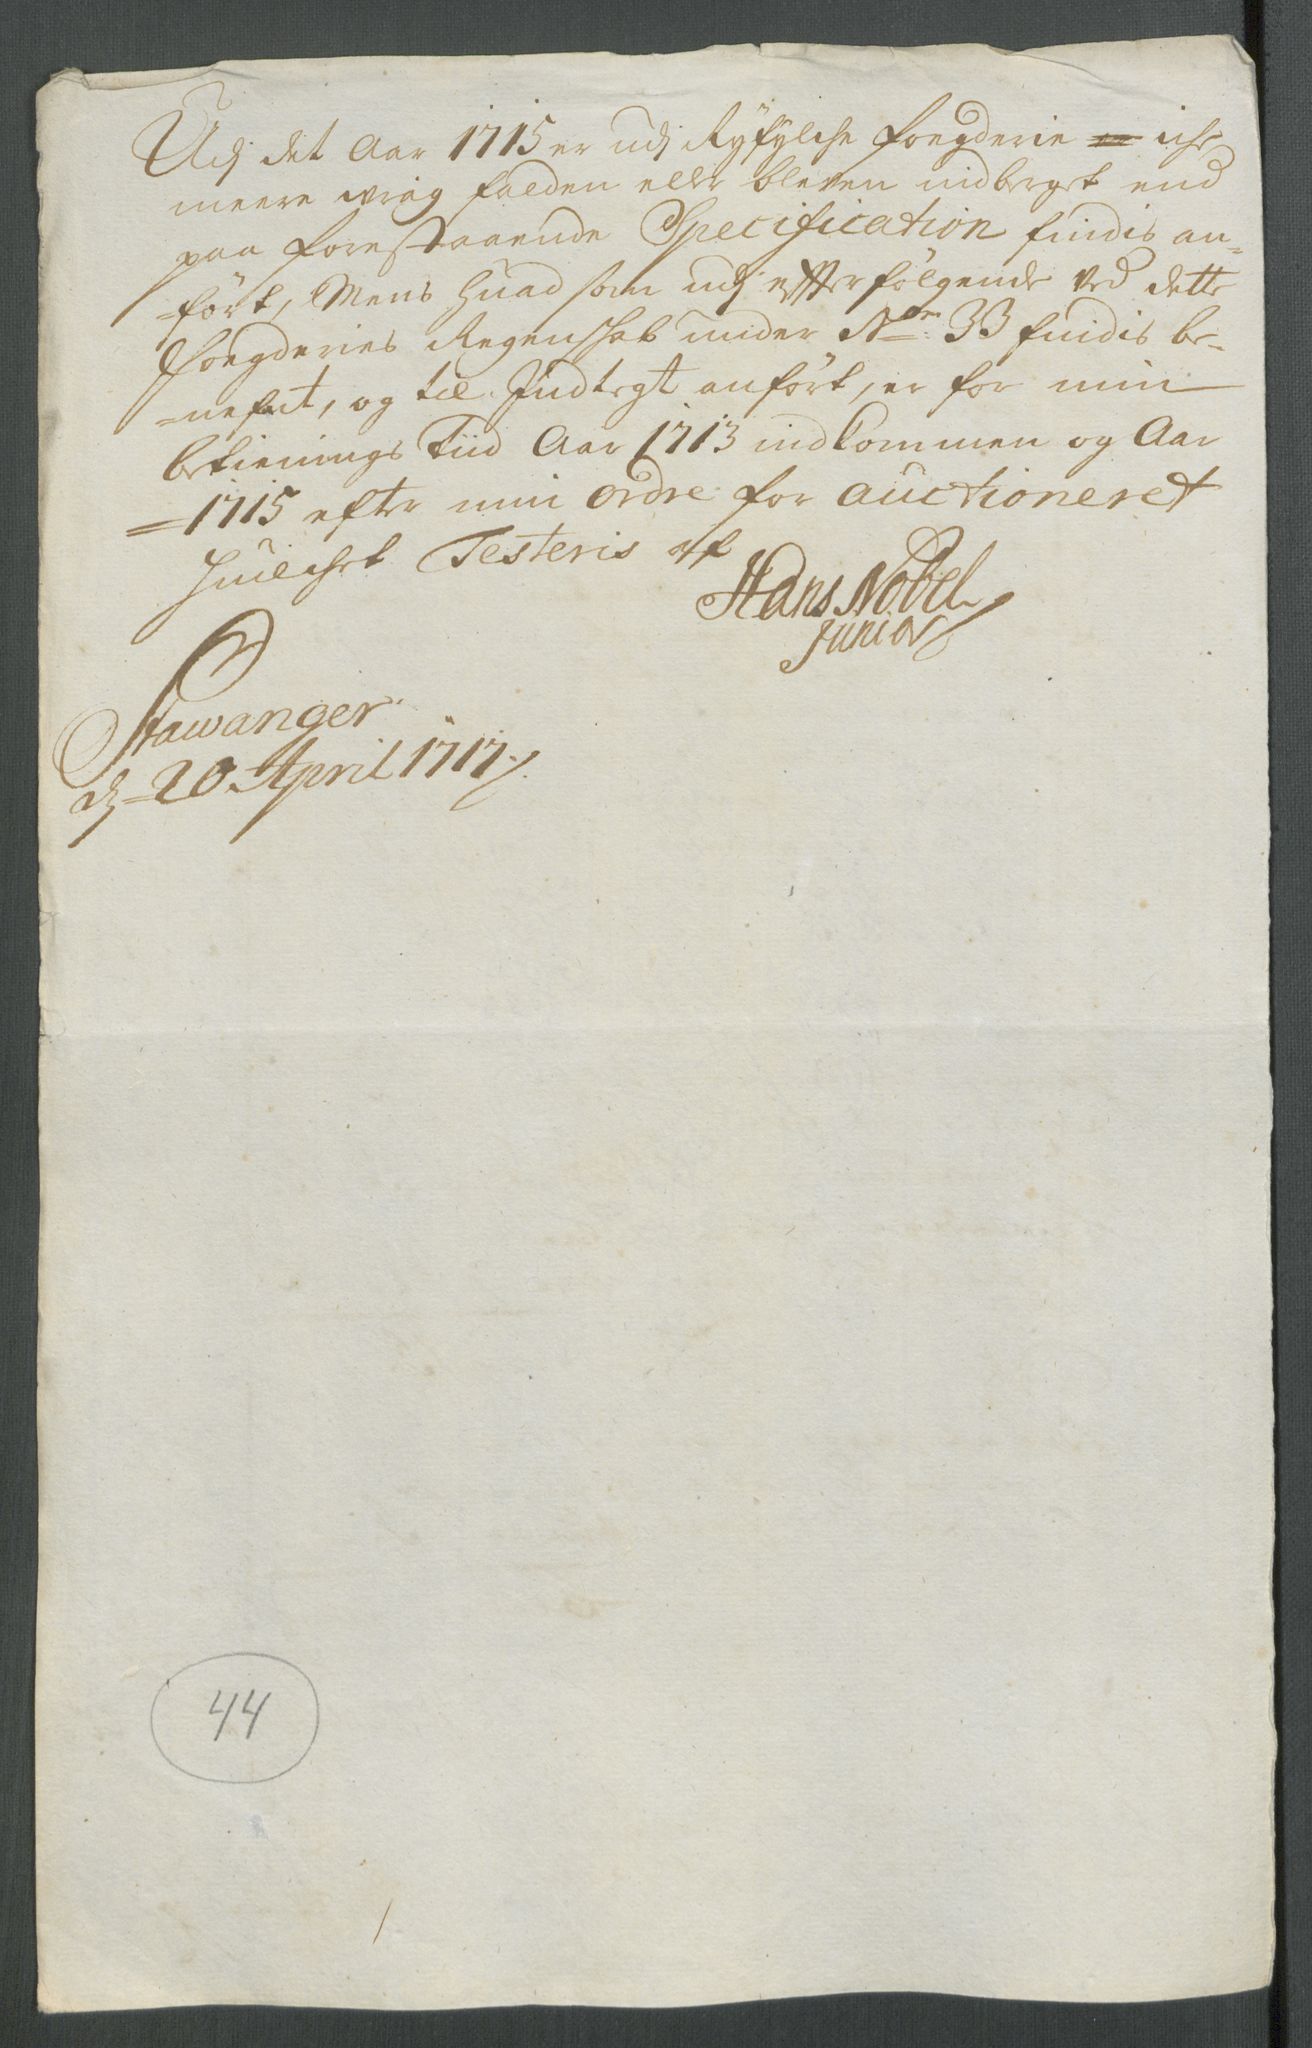 Udj det Aar 1715 er udj Ryfylche fogderie iche
meere wrag falden eller bleven indberget end
paa forestaaende Specification findis an-
=ført, Mens huad som udj effterfølgende ved dette
fogderies Regenskab under No 33 findis be-
=nefnt, og til Indtegt anført, er for min
betienings Tiid Aar 1713 indkommen og Aar
=1715 efter min ordre for auctioneret
huilchet Testeris af
Hans Nobel
Junior
Stawanger
dj 20 April 1717.
44